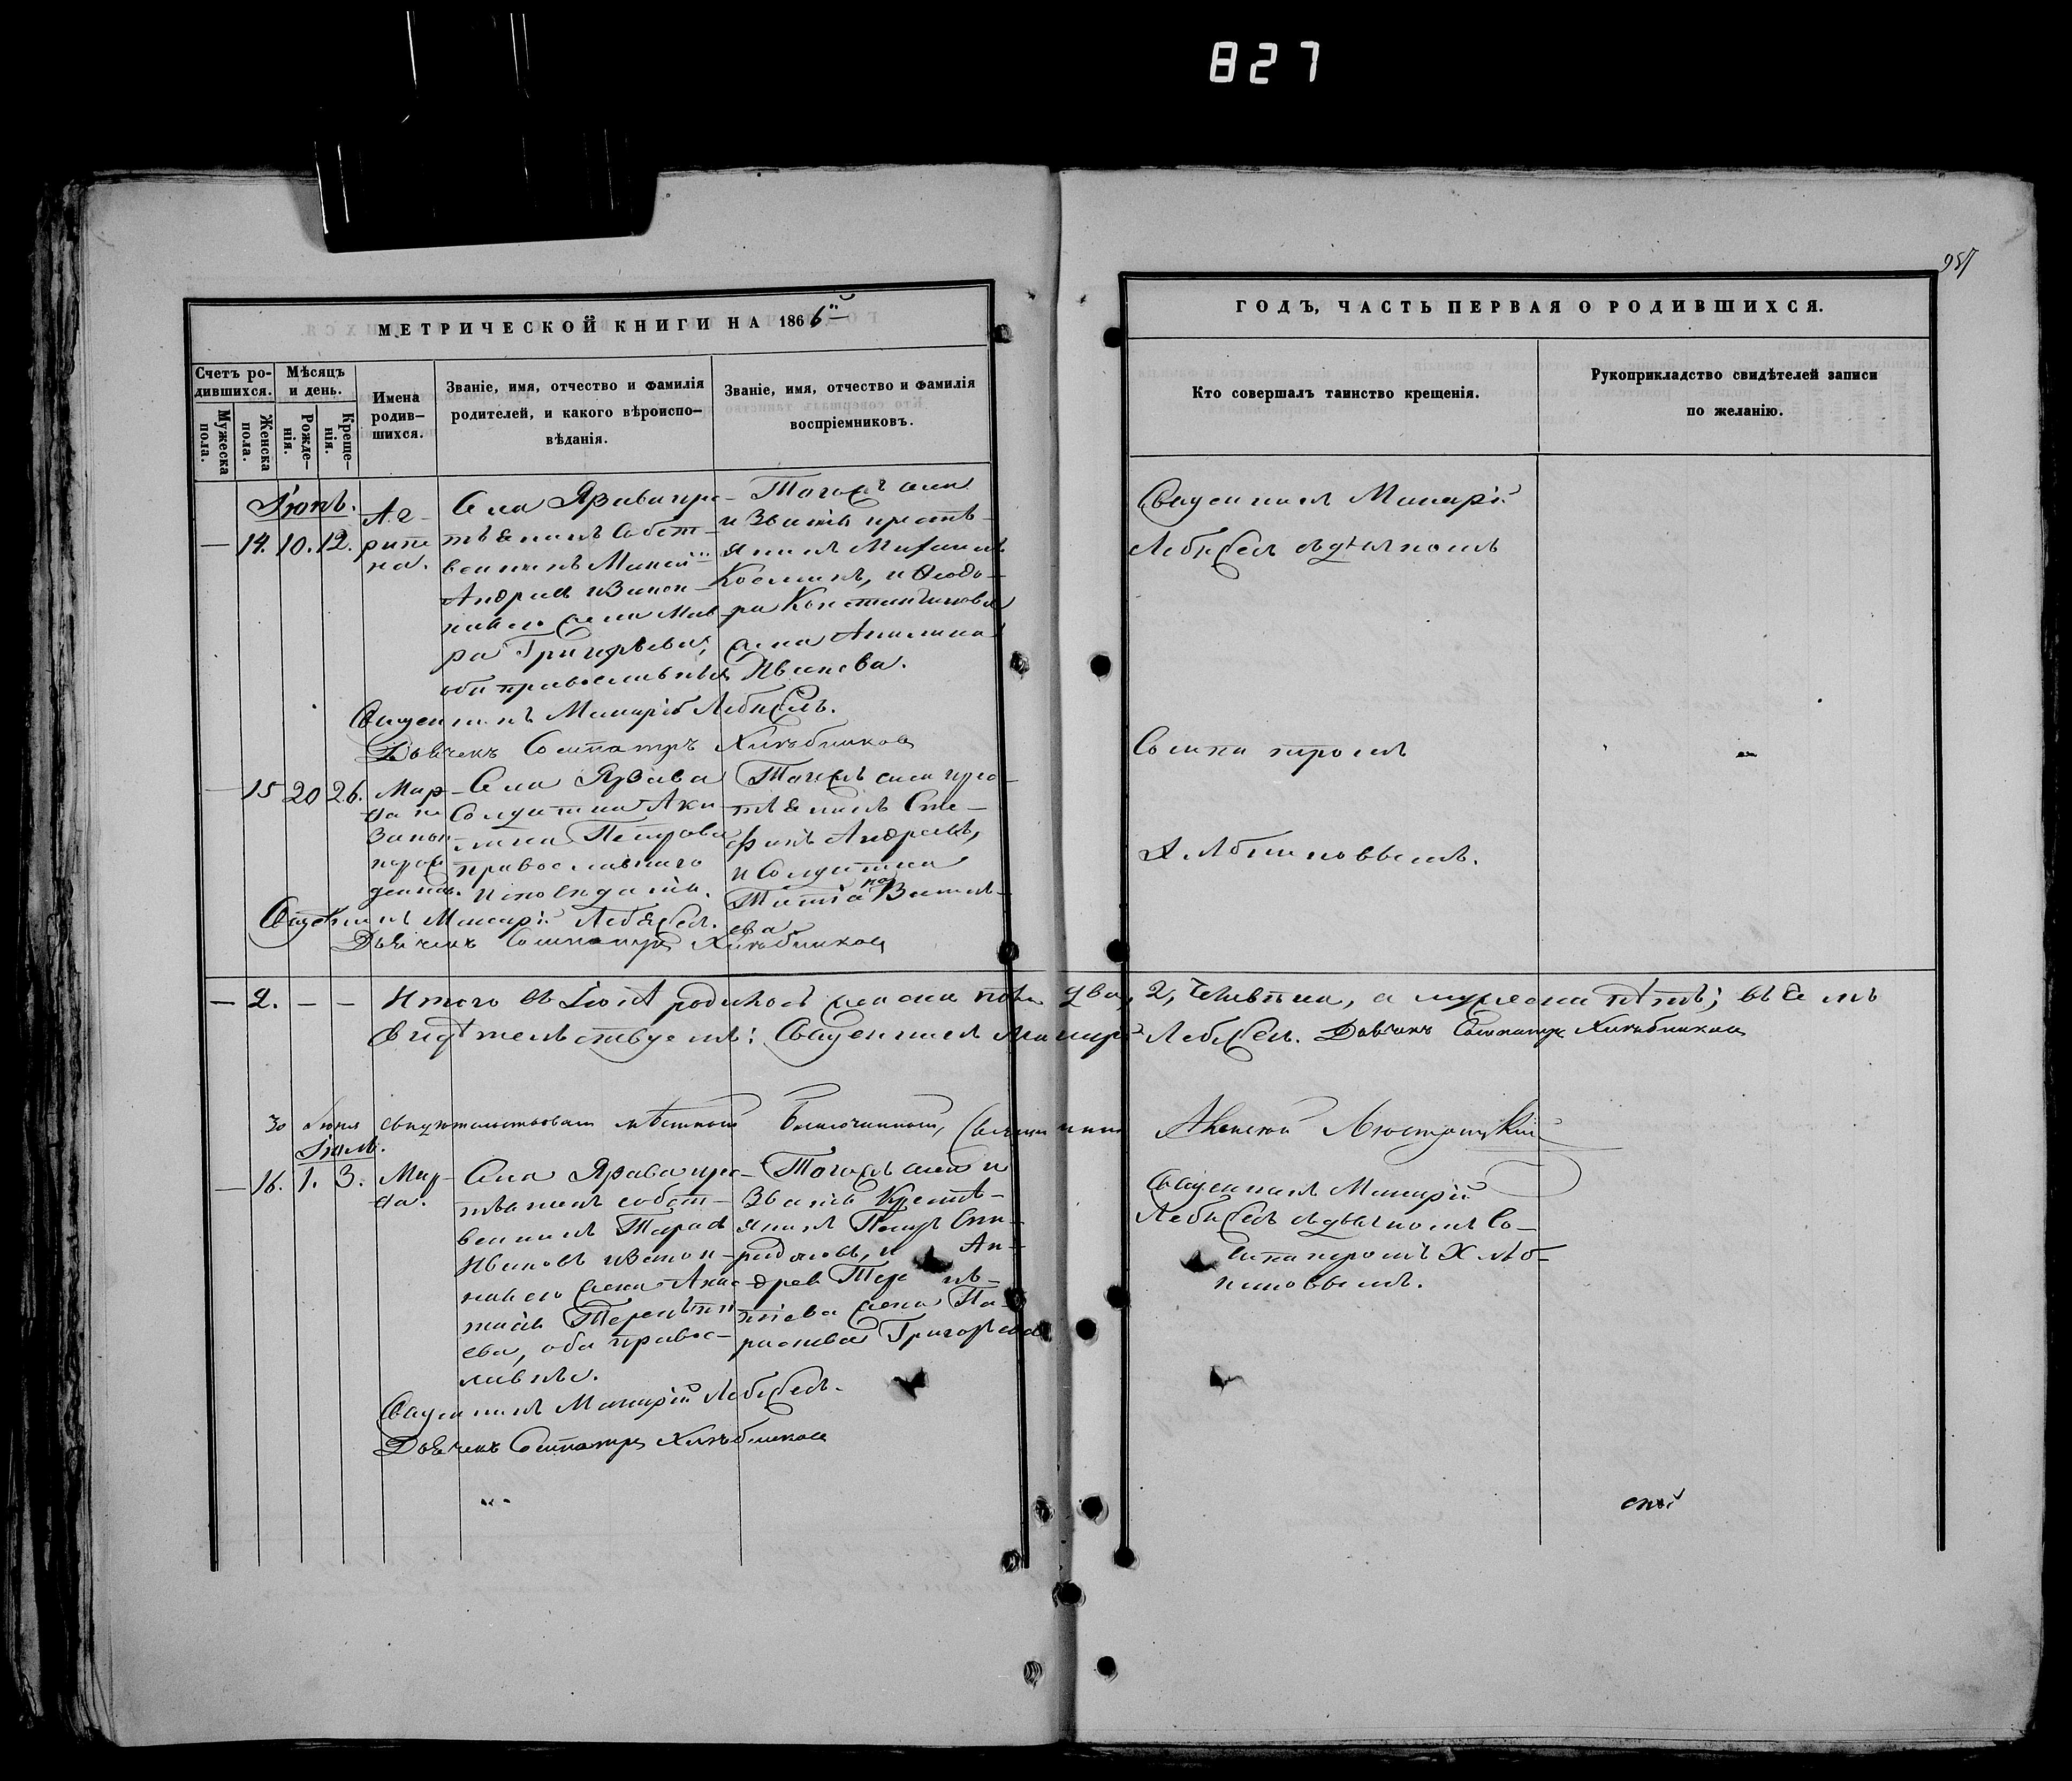 827
987
МЕТРИЧЕСКОЙ КНИГИ НА 1866й
ГОДЪ, ЧАСТЬ ПЕРВАЯ О РОДИВШИХСЯ.
Счетъ ро-
дившихся.
Мужеска
пола.
Женска
пола.
Мѣсяцъ
и день.
Рожде-
нія.
Креще-
нія.
Имена
родив-
шихся.
Званіе, имя, отчество и фамилія
родителей, и какого вѣроиспо-
вѣданія.
Званіе, имя, отчество и фамилія
воспріемниковъ.
Кто совершалъ таинство крещенія.
Рукоприкладство свидѣтелей записи
по желанію.
Іюнь.
— 14. 10. 12.
Аг-
рипе
на.
Села
тьянинъ Собст-
венникъ
Андреевъ и закон-
ная его жена Мав
ра Григорьева,
оба православныя
Тогожъ села
и званія кресть-
янинъ Михаилъ
Косминъ, и Ѳеодо-
ра Константинова
жена Акилина
Иванова.
Священникъ Макарій
Лебедевъ съ дьячкомъ
Сосипатромъ
Хлѣбниковымъ.
Священникъ Макарій Лебедевъ.
Дьячекъ Сосипатръ Хлѣбниковъ
— 15 20 26.
Мар-
ѳа не
закон
норож
денная.
Села
Солдатка Аки-
лина Петрова
православнаго
исповеданія.
Тогожъ села кре-
стьянинъ Сте-
фанъ Андреевъ,
и Солдатка
Васил-
ева
Священникъ Макарій Лебедевъ.
Дьячекъ Сосипатръ Хлѣбниковъ
— 2. — — Итого въ Іюнѣ родилось женска пола два, 2, человѣка, а мужеска нѣтъ; въ чемъ
свидѣтельствуемъ: Священникъ Макарій Лебедевъ. Дьячекъ Сосипатръ Хлѣбниковъ
30 Іюня свидѣтельствовалъ мѣстный Благочинный, Священникъ Алексѣй
Іюль.
— 16. 1. 3.
Мар-
ѳа.
Села
тьянинъ собст-
венникъ Тарасъ
Ивановъ и закон-
ная его жена Анас-
тасія Терентьи
ева, оба правос-
лавные.
Тогожъ села и
званія Кресть-
янинъ Петръ Спи-
ридоновъ, и Ан-
дрея
тіева жена Па-
раскева Григорьева
Священникъ Макарій
Лебедевъ съ дьячкомъ Со-
сипатромъ Хлѣб-
никовымъ.
Священникъ Макарій Лебедевъ.
Дьячекъ Сосипатръ Хлѣбниковъ